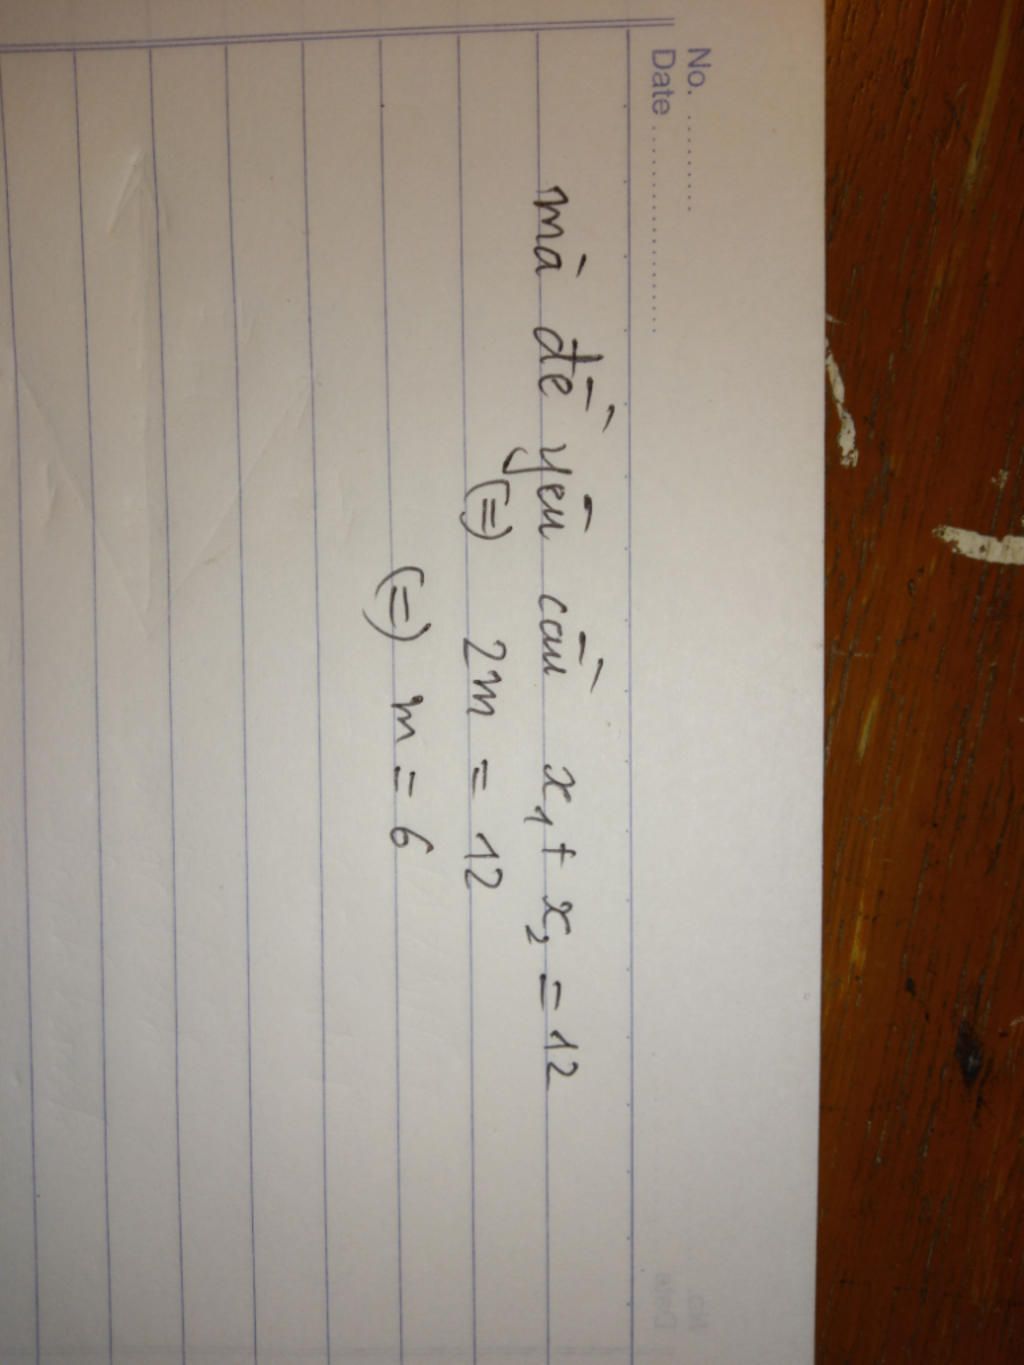 No. ..........
Date ......................
mà đề yêu cầu x₁ + x₂ = 12
(=) 2m = 12
(=) m = 6